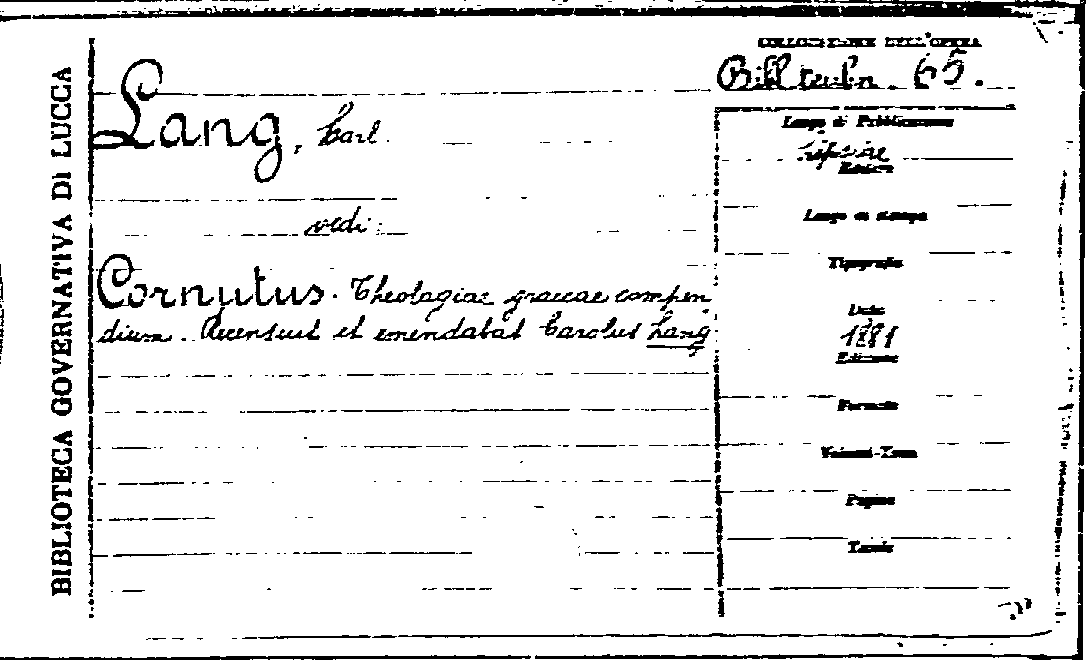 BIBLIOTECA GOVERNATIVA DI LUCCA
COLLOCAZIONE DELL'OPERA
Bibl. teubn. 65.
Lang, Carl.
vedi:
Cornutus. Theologiae graecae compen
dium. Recensuit et emendabat Carolus Lang
Luogo di Pubblicazione
Lipsiae
Editore
Luogo di stampa
Tipografia
Data
1881
Edizione
Formato
Volumi-Tomi
Pagine
Tavole